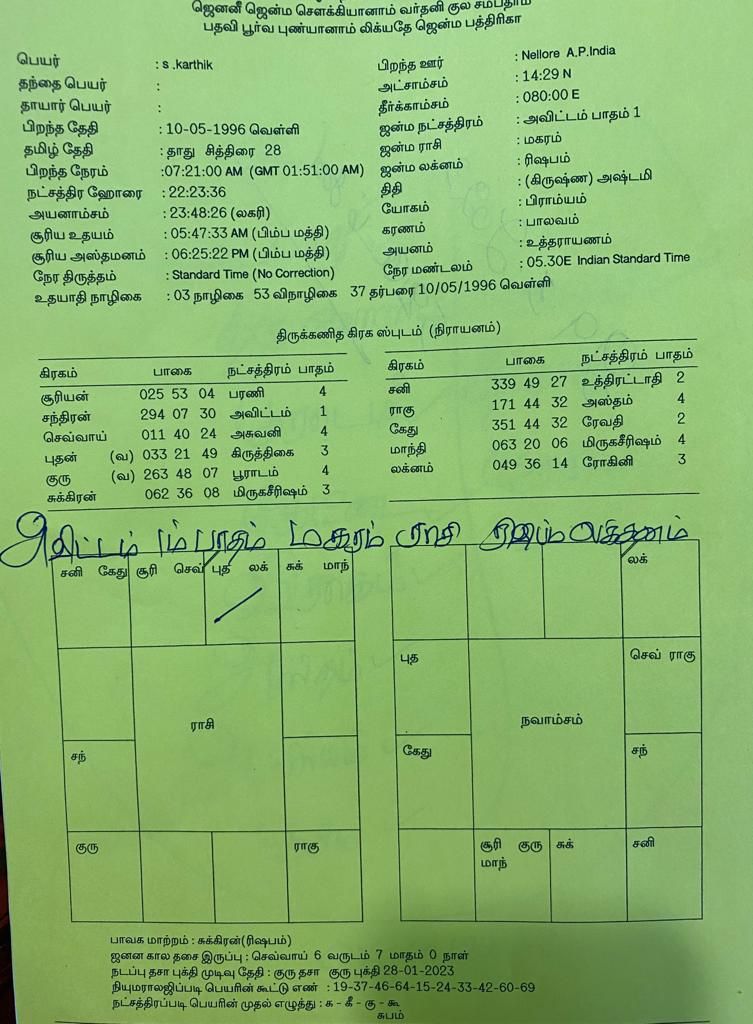 ஜெனனீ ஜென்ம சௌக்கியானாம் வர்தனி குல சம்பதாம்
பதவி பூர்வ புண்யானாம் லிக்யதே ஜென்ம பத்திரிகா
பெயர் : s .karthik
தந்தை பெயர் :
தாயார் பெயர் :
பிறந்த தேதி : 10-05-1996 வெள்ளி
தமிழ் தேதி : தாது சித்திரை 28
பிறந்த நேரம் :07:21:00 AM (GMT 01:51:00 AM)
நட்சத்திர ஹோரை : 22:23:36
அயனாம்சம் : 23:48:26 (லகரி)
சூரிய உதயம் : 05:47:33 AM (பிம்ப மத்தி)
சூரிய அஸ்தமனம் : 06:25:22 PM (பிம்ப மத்தி)
நேர திருத்தம் : Standard Time (No Correction)
உதயாதி நாழிகை : 03 நாழிகை 53 விநாழிகை 37 தர்பரை 10/05/1996 வெள்ளி
பிறந்த ஊர் : Nellore A.P.India
அட்சாம்சம் : 14:29 N
தீர்க்காம்சம் : 080:00 E
ஜன்ம நட்சத்திரம் : அவிட்டம் பாதம் 1
ஜன்ம ராசி : மகரம்
ஜன்ம லக்னம் : ரிஷபம்
திதி : (கிருஷ்ண) அஷ்டமி
யோகம் : பிராம்யம்
கரணம் : பாலவம்
அயனம் : உத்தராயணம்
நேர மண்டலம் : 05.30E Indian Standard Time
திருக்கணித கிரக ஸ்புடம் (நிராயனம்)
கிரகம் பாகை நட்சத்திரம் பாதம்
சூரியன் 025 53 04 பரணி 4
சந்திரன் 294 07 30 அவிட்டம் 1
செவ்வாய் 011 40 24 அசுவனி 4
புதன் (வ) 033 21 49 கிருத்திகை 3
குரு (வ) 263 48 07 பூராடம் 4
சுக்கிரன் 062 36 08 மிருகசீரிஷம் 3
கிரகம் பாகை நட்சத்திரம் பாதம்
சனி 339 49 27 உத்திரட்டாதி 2
ராகு 171 44 32 அஸ்தம் 4
கேது 351 44 32 ரேவதி 2
மாந்தி 063 20 06 மிருகசீரிஷம் 4
லக்னம் 049 36 14 ரோகினி 3
அவிட்டம் 1ம் பாதம் மகரம் ராசி
சனி கேது சூரி செவ் புத லக் சுக் மாந்
ராசி
சந்
குரு ராகு
லக்
புத செவ் ராகு
நவாம்சம்
கேது சந்
சூரி குரு சுக் சனி
மாந்
பாவக மாற்றம் : சுக்கிரன்(ரிஷபம்)
ஜனன கால தசை இருப்பு : செவ்வாய் 6 வருடம் 7 மாதம் 0 நாள்
நடப்பு தசா புக்தி முடிவு தேதி : குரு தசா குரு புக்தி 28-01-2023
நியுமராலஜிப்படி பெயரின் கூட்டு எண் : 19-37-46-64-15-24-33-42-60-69
நட்சத்திரப்படி பெயரின் முதல் எழுத்து : க - கீ - கு - கூ
சுபம்